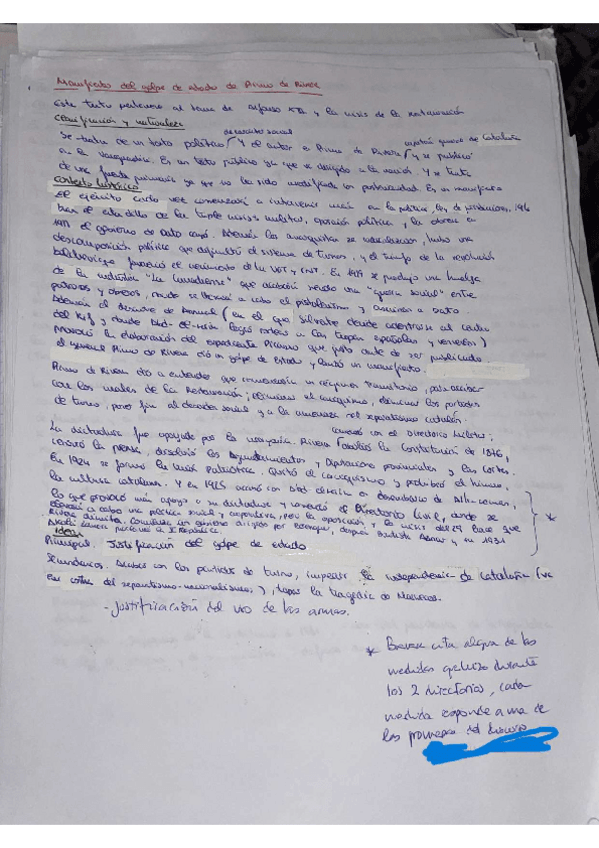 Manifiesto del golpe de estado de Primo de Rivera
Este texto pertenece al tema de Alfonso XIII y la crisis de la restauración
Clasificación y naturaleza
de carácter social capitán general de Cataluña
Se trata de un texto político y el autor es Primo de Rivera y se publicó
en la vanguardia. Es un texto público ya que va dirigido a la nación y se trata
de una fuente primaria ya que no ha sido modificada con posterioridad. Es un manifiesto
Contexto histórico
El ejército cada vez comenzará a intervenir más en la política, ley de jurisdicciones, 1906
el estallido de la triple crisis militar, oposición política y la obrera en
1917 el gobierno de Dato cayó. Además los anarquistas se radicalizaron, hubo una
descomposición política que dificultó el sistema de turnos, y el triunfo de la revolución
bolchevique favoreció el crecimiento de la UGT y CNT. En 1919 se produjo una huelga
de la industria "La Canadiense" que acabó siendo una "guerra social" entre
patronos y obreros, donde se llevará a cabo el pistolerismo y asesinan a Dato.
Además el desastre de Annual (en el que Silvestre decide adentrarse al centro
del Rif y donde Abd-el-Krim logra rodear a las tropas españolas y vencerlas)
provocó la elaboración del expediente Picasso que justo antes de ser publicado.
el general Primo de Rivera dio un golpe de Estado y lanzó un manifiesto.
Primo de Rivera dio a entender que comenzaría un régimen transitorio, para acabar
con los males de la Restauración; eliminar el caciquismo, eliminar los partidos
de turno, poner fin al desorden social y a la amenaza del separatismo catalán.
comenzó con el Directorio Militar;
La dictadura fue apoyada por la monarquía. Rivera la Constitución de 1876,
censuró la prensa, disolvió los Ayuntamientos y Diputaciones provinciales y las Cortes.
En 1924 se formó la Unión Patriótica. Quitó el caciquismo y prohibió el himno,
la cultura catalana. Y en 1925 acabó con Abd el-Krim en desembarco de Alhucemas,
lo que provocó más apoyo a su dictadura y comenzó el Directorio Civil, donde se
llevará a cabo una política social y corporativa, pero la oposición y la crisis del 29 hace que
Rivera dimita. Comienza un gobierno dirigido por Berenguer, después Bautista Aznar y en 1931
Ideas
Principal. Justificación del golpe de estado
Secundarias. Acabar con los partidos de turno, impedir la independencia de Cataluña (va
en contra del separatismo-nacionalismo), tapar la tragedia de Marruecos.
- Justificación del uso de las armas.
* Breve cita alguna de las
medidas que hizo durante
los 2 directorios, cada
medida responde a una de
las promesas del discurso
*